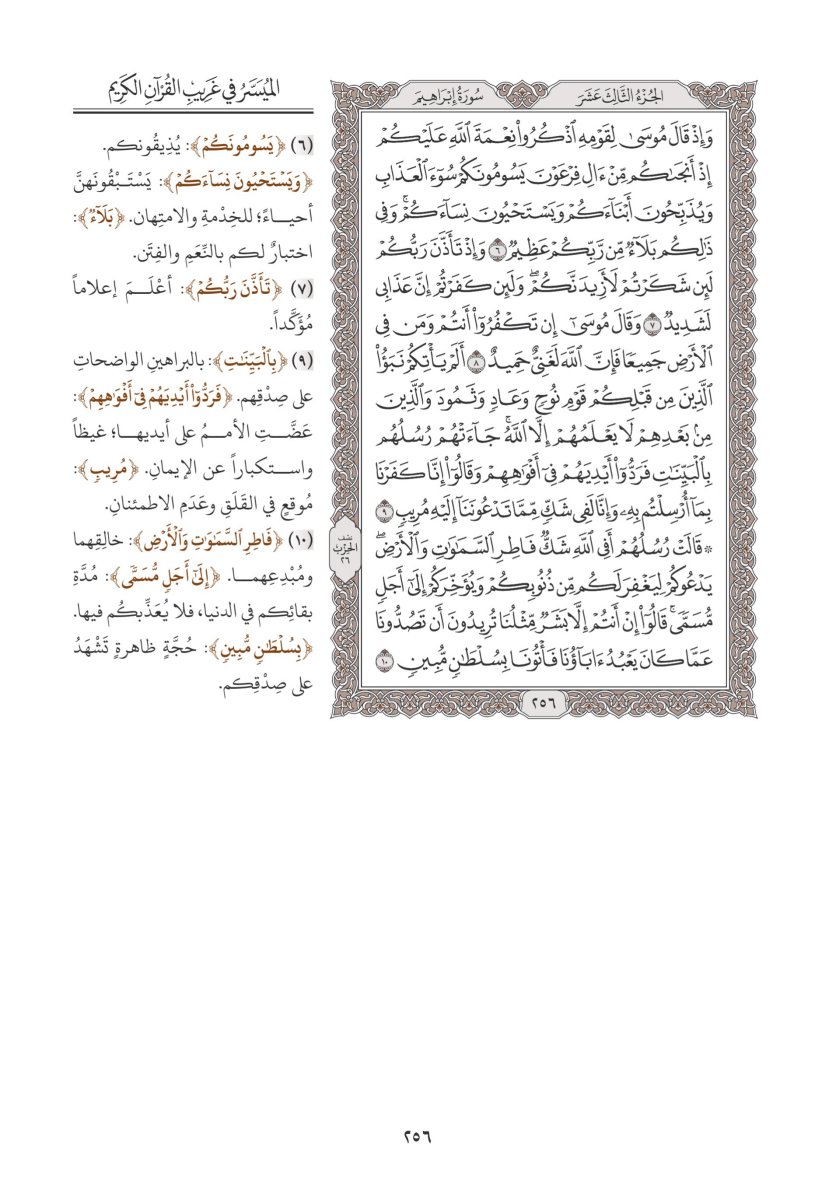 الجُزْءُ الثَّالِثَ عَشَرَ
سُورَةُ إِبْرَاهِيمَ
وَإِذْ قَالَ مُوسَىٰ لِقَوْمِهِ ٱذْكُرُواْ نِعْمَةَ ٱللَّهِ عَلَيْكُمْ
إِذْ أَنجَىٰكُم مِّنْ ءَالِ فِرْعَوْنَ يَسُومُونَكُمْ سُوٓءَ ٱلْعَذَابِ
وَيُذَبِّحُونَ أَبْنَآءَكُمْ وَيَسْتَحْيُونَ نِسَآءَكُمْۚ وَفِي
ذَٰلِكُم بَلَآءٌ مِّن رَّبِّكُمْ عَظِيمٌ ٦ وَإِذْ تَأَذَّنَ رَبُّكُمْ
لَئِن شَكَرْتُمْ لَأَزِيدَنَّكُمْۖ وَلَئِن كَفَرْتُمْ إِنَّ عَذَابِي
لَشَدِيدٌ ٧ وَقَالَ مُوسَىٰٓ إِن تَكْفُرُوٓاْ أَنتُمْ وَمَن فِي
ٱلْأَرْضِ جَمِيعًا فَإِنَّ ٱللَّهَ لَغَنِيٌّ حَمِيدٌ ٨ أَلَمْ يَأْتِكُمْ نَبَؤُاْ
ٱلَّذِينَ مِن قَبْلِكُمْ قَوْمِ نُوحٍ وَعَادٍ وَثَمُودَ وَٱلَّذِينَ
مِنۢ بَعْدِهِمْ لَا يَعْلَمُهُمْ إِلَّا ٱللَّهُۚ جَآءَتْهُمْ رُسُلُهُم
بِٱلْبَيِّنَٰتِ فَرَدُّوٓاْ أَيْدِيَهُمْ فِيٓ أَفْوَٰهِهِمْ وَقَالُوٓاْ إِنَّا كَفَرْنَا
بِمَآ أُرْسِلْتُم بِهِۦ وَإِنَّا لَفِي شَكٍّ مِّمَّا تَدْعُونَنَآ إِلَيْهِ مُرِيبٍ ٩
۞ قَالَتْ رُسُلُهُمْ أَفِي ٱللَّهِ شَكٌّ فَاطِرِ ٱلسَّمَٰوَٰتِ وَٱلْأَرْضِۖ
يَدْعُوكُمْ لِيَغْفِرَ لَكُم مِّن ذُنُوبِكُمْ وَيُؤَخِّرَكُمْ إِلَىٰٓ أَجَلٍ
مُّسَمًّىۚ قَالُوٓاْ إِنْ أَنتُمْ إِلَّا بَشَرٌ مِّثْلُنَا تُرِيدُونَ أَن تَصُدُّونَا
عَمَّا كَانَ يَعْبُدُ ءَابَآؤُنَا فَأْتُونَا بِسُلْطَٰنٍ مُّبِينٍ ١٠
نصف
الحزب
٢٦
٢٥٦
المُيَسَّرُ في غَرِيبِ القُرْآنِ الكَرِيمِ
(٦) ﴿يَسُومُونَكُمْ﴾: يُذِيقُونكم.
﴿وَيَسْتَحْيُونَ نِسَآءَكُمْ﴾: يَسْتَبْقُونَهنَّ
أحياءً؛ للخِدْمةِ والامتِهان. ﴿بَلَآءٌ﴾:
اختبارٌ لكم بالنِّعَمِ والفِتَن.
(٧) ﴿تَأَذَّنَ رَبُّكُمْ﴾: أعْلَمَ إعلاماً
مُؤَكَّداً.
(٩) ﴿بِٱلْبَيِّنَٰتِ﴾: بالبراهينِ الواضحاتِ
على صِدْقِهم. ﴿فَرَدُّوٓاْ أَيْدِيَهُمْ فِيٓ أَفْوَٰهِهِمْ﴾:
عَضَّتِ الأممُ على أيديها؛ غيظاً
واستكباراً عن الإيمانِ. ﴿مُرِيبٍ﴾:
مُوقعٍ في القَلَقِ وعَدَمِ الاطمئنانِ.
(١٠) ﴿فَاطِرِ ٱلسَّمَٰوَٰتِ وَٱلْأَرْضِ﴾: خالقِهما
ومُبْدِعِهما. ﴿إِلَىٰٓ أَجَلٍ مُّسَمًّى﴾: مُدَّةِ
بقائِكم في الدنيا، فلا يُعَذِّبكُم فيها.
﴿بِسُلْطَٰنٍ مُّبِينٍ﴾: حُجَّةٍ ظاهرةٍ تَشْهَدُ
على صِدْقِكم.
٢٥٦